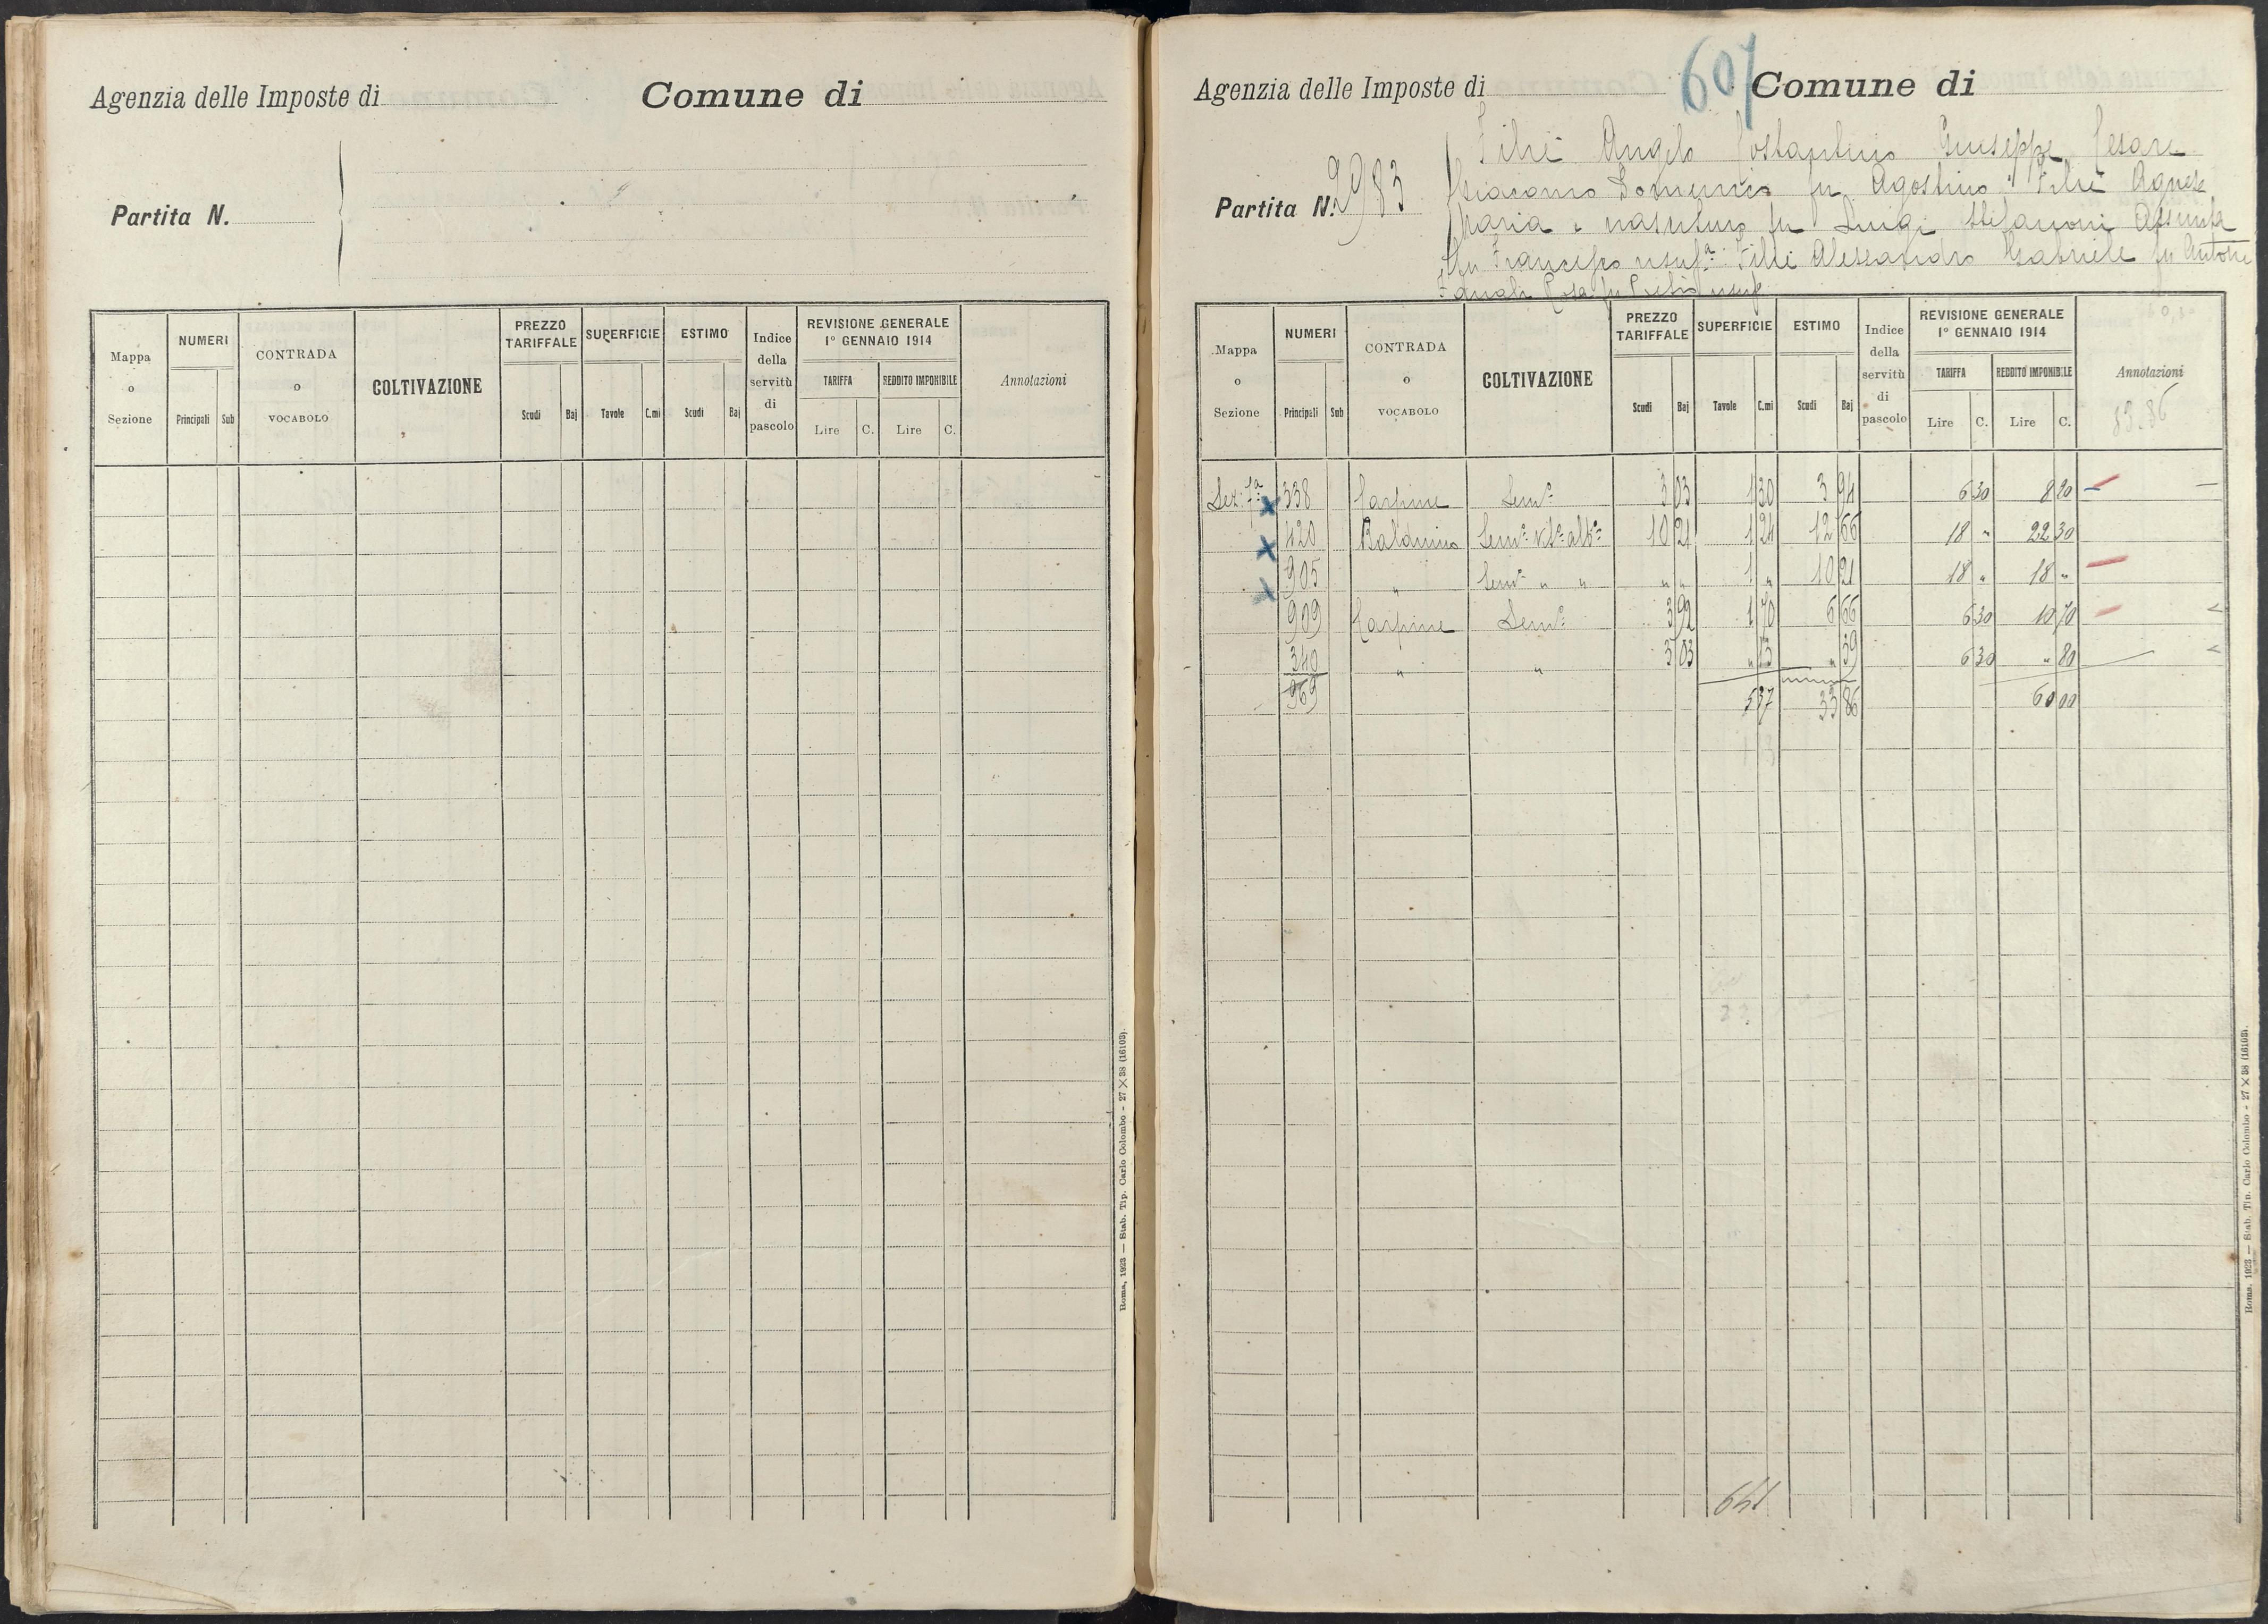 Agenzia delle Imposte di
Comune di
Partita N.
Mappa o Sezione
NUMERI
Principali Sub
CONTRADA o VOCABOLO
COLTIVAZIONE
PREZZO TARIFFALE
Scudi Baj
SUPERFICIE
Tavole C.mi
ESTIMO
Scudi Baj
Indice della servitù di pascolo
REVISIONE GENERALE 1° GENNAIO 1914
TARIFFA
Lire C.
REDDITO IMPONIBILE
Lire C.
Annotazioni
Roma, 1923 — Stab. Tip. Carlo Colombo - 27 × 38 (16103).
607
Agenzia delle Imposte di
Comune di
Partita N. 2983
Angelo Costantino Giuseppe Cesare
Giacomo Domenico fu Agostino Agnese
Maria e nascituro fu Luigi Stefanoni Assunta
fu Francesco usuf.a Alessandro Gabriele fu Antonio
Rosa fu usuf.
Mappa o Sezione
NUMERI
Principali Sub
CONTRADA o VOCABOLO
COLTIVAZIONE
PREZZO TARIFFALE
Scudi Baj
SUPERFICIE
Tavole C.mi
ESTIMO
Scudi Baj
Indice della servitù di pascolo
REVISIONE GENERALE 1° GENNAIO 1914
TARIFFA
Lire C.
REDDITO IMPONIBILE
Lire C.
Annotazioni
33.86
Sez. 1a 338 Carpine Sem.o 3 03 1 30 3 94 6 30 8 20
420 Balduino Sem.o vit.o alb.o 10 21 1 24 12 66 18 " 22 30
905 " Sem.o " " " " 1 " 10 21 18 " 18 "
909 Carpine Sem.o 3 92 1 70 6 66 6 30 10 70
340 " " 3 03 " 13 " 39 6 30 " 80
969 5 37 33 86 60 00
641
Roma, 1923 — Stab. Tip. Carlo Colombo - 27 × 38 (16103).